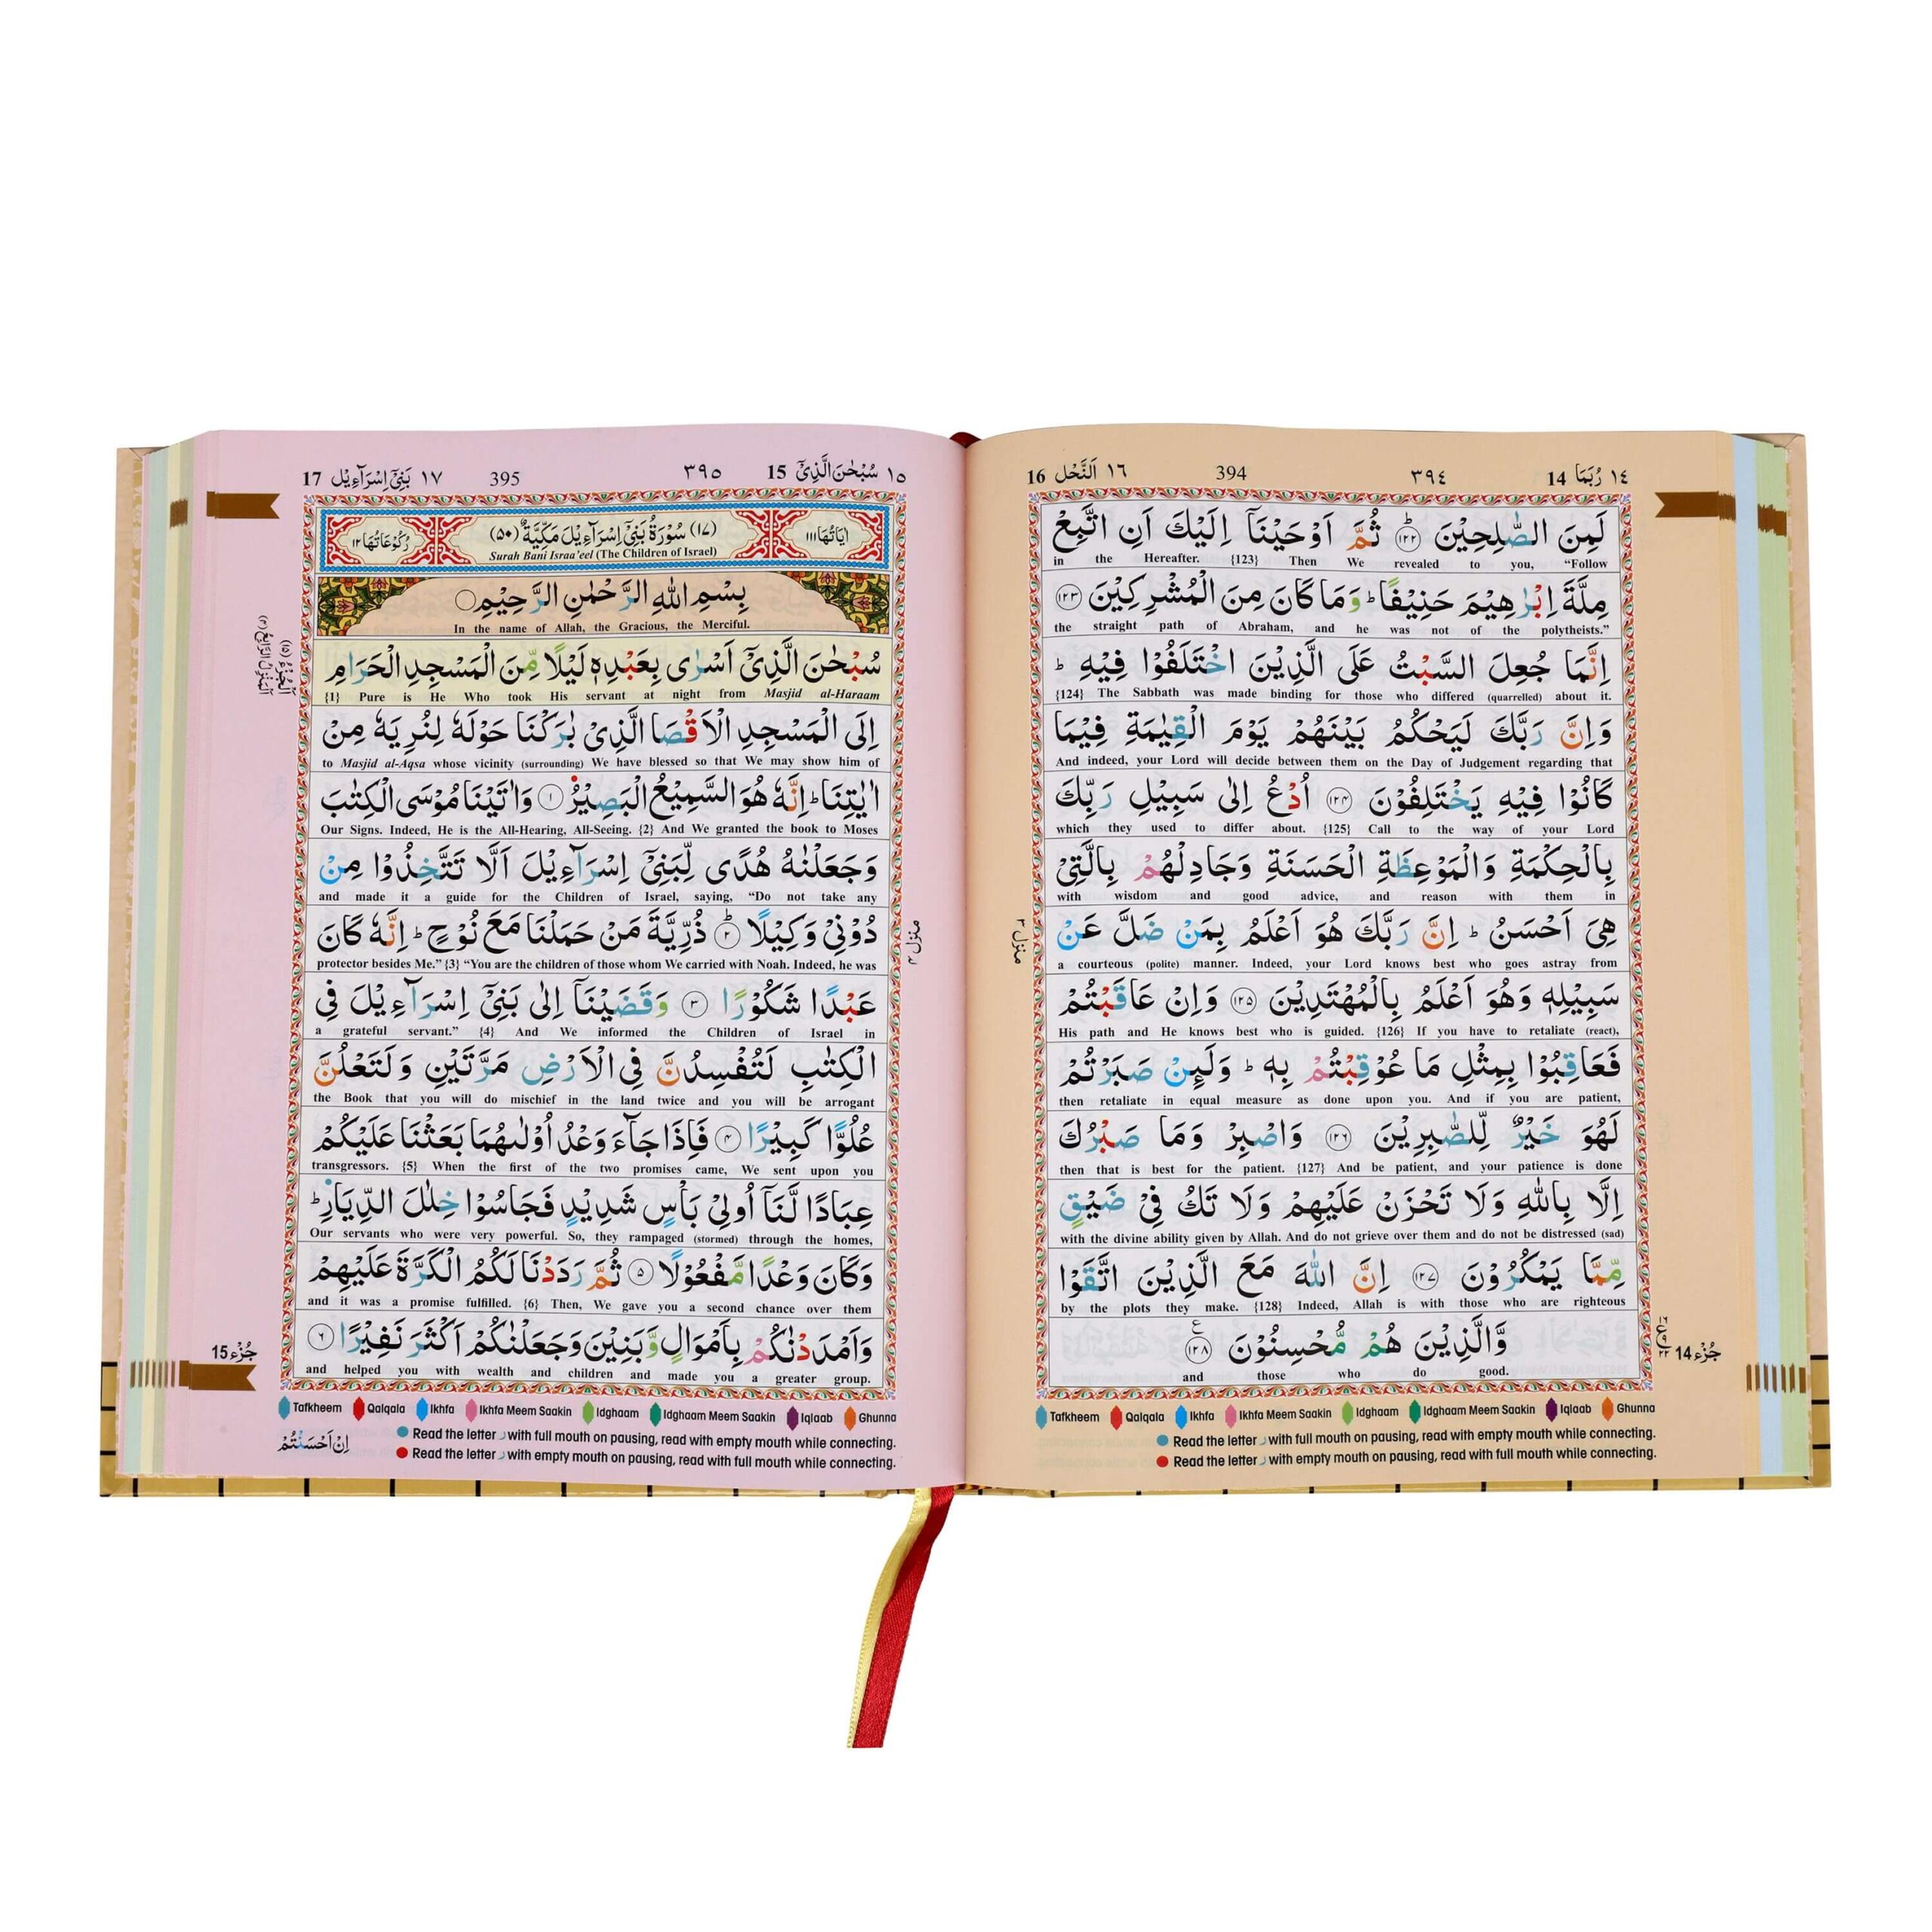 ١٤ رُبَمَا 14 ٣٩٤ 394 ١٦ اَلنَّحْل 16
لَمِنَ الصّٰلِحِيْنَ ﴿١٢٢﴾ ثُمَّ اَوْحَيْنَاۤ اِلَيْكَ اَنِ اتَّبِعْ
in the Hereafter. {123} Then We revealed to you, “Follow
مِلَّةَ اِبْرٰهِيْمَ حَنِيْفًا ؕ وَمَا كَانَ مِنَ الْمُشْرِكِيْنَ ﴿١٢٣﴾
the straight path of Abraham, and he was not of the polytheists.”
اِنَّمَا جُعِلَ السَّبْتُ عَلَى الَّذِيْنَ اخْتَلَفُوْا فِيْهِ ؕ
{124} The Sabbath was made binding for those who differed (quarrelled) about it.
وَاِنَّ رَبَّكَ لَيَحْكُمُ بَيْنَهُمْ يَوْمَ الْقِيٰمَةِ فِيْمَا
And indeed, your Lord will decide between them on the Day of Judgement regarding that
كَانُوْا فِيْهِ يَخْتَلِفُوْنَ ﴿١٢٤﴾ اُدْعُ اِلٰى سَبِيْلِ رَبِّكَ
which they used to differ about. {125} Call to the way of your Lord
بِالْحِكْمَةِ وَالْمَوْعِظَةِ الْحَسَنَةِ وَجَادِلْهُمْ بِالَّتِيْ
with wisdom and good advice, and reason with them in
هِيَ اَحْسَنُ ؕ اِنَّ رَبَّكَ هُوَ اَعْلَمُ بِمَنْ ضَلَّ عَنْ
a courteous (polite) manner. Indeed, your Lord knows best who goes astray from
سَبِيْلِهٖ وَهُوَ اَعْلَمُ بِالْمُهْتَدِيْنَ ﴿١٢٥﴾ وَاِنْ عَاقَبْتُمْ
His path and He knows best who is guided. {126} If you have to retaliate (react),
فَعَاقِبُوْا بِمِثْلِ مَا عُوْقِبْتُمْ بِهٖ ؕ وَلَىِٕنْ صَبَرْتُمْ
then retaliate in equal measure as done upon you. And if you are patient,
لَهُوَ خَيْرٌ لِّلصّٰبِرِيْنَ ﴿١٢٦﴾ وَاصْبِرْ وَمَا صَبْرُكَ
then that is best for the patient. {127} And be patient, and your patience is done
اِلَّا بِاللّٰهِ وَلَا تَحْزَنْ عَلَيْهِمْ وَلَا تَكُ فِيْ ضَيْقٍ
with the divine ability given by Allah. And do not grieve over them and do not be distressed (sad)
مِّمَّا يَمْكُرُوْنَ ﴿١٢٧﴾ اِنَّ اللّٰهَ مَعَ الَّذِيْنَ اتَّقَوْا
by the plots they make. {128} Indeed, Allah is with those who are righteous
وَّالَّذِيْنَ هُمْ مُّحْسِنُوْنَ ﴿١٢٨﴾
and those who do good.
منزل ٣
جُزْء 14
Tafkheem Qalqala Ikhfa Ikhfa Meem Saakin Idghaam Idghaam Meem Saakin Iqlaab Ghunna
Read the letter ر with full mouth on pausing, read with empty mouth while connecting.
Read the letter ر with empty mouth on pausing, read with full mouth while connecting.
١٥ سُبْحٰنَ الَّذِيْۤ 15 ٣٩٥ 395 ١٧ بَنِيْۤ اِسْرَآءِيْل 17
اٰيَاتُهَا ١١١ (١٧) سُوْرَةُ بَنِيْۤ اِسْرَآءِيْلَ مَكِّيَّةٌ (٥٠) رُكُوْعَاتُهَا ١٢
Surah Bani Israa'eel (The Children of Israel)
بِسْمِ اللّٰهِ الرَّحْمٰنِ الرَّحِيْمِ
In the name of Allah, the Gracious, the Merciful.
سُبْحٰنَ الَّذِيْۤ اَسْرٰى بِعَبْدِهٖ لَيْلًا مِّنَ الْمَسْجِدِ الْحَرَامِ
{1} Pure is He Who took His servant at night from Masjid al-Haraam
اِلَى الْمَسْجِدِ الْاَقْصَا الَّذِيْ بٰرَكْنَا حَوْلَهٗ لِنُرِيَهٗ مِنْ
to Masjid al-Aqsa whose vicinity (surrounding) We have blessed so that We may show him of
اٰيٰتِنَا ؕ اِنَّهٗ هُوَ السَّمِيْعُ الْبَصِيْرُ ﴿١﴾ وَاٰتَيْنَا مُوْسَى الْكِتٰبَ
Our Signs. Indeed, He is the All-Hearing, All-Seeing. {2} And We granted the book to Moses
وَجَعَلْنٰهُ هُدًى لِّبَنِيْۤ اِسْرَآءِيْلَ اَلَّا تَتَّخِذُوْا مِنْ
and made it a guide for the Children of Israel, saying, “Do not take any
دُوْنِيْ وَكِيْلًا ﴿٢﴾ ذُرِّيَّةَ مَنْ حَمَلْنَا مَعَ نُوْحٍ ؕ اِنَّهٗ كَانَ
protector besides Me.” {3} “You are the children of those whom We carried with Noah. Indeed, he was
عَبْدًا شَكُوْرًا ﴿٣﴾ وَقَضَيْنَاۤ اِلٰى بَنِيْۤ اِسْرَآءِيْلَ فِي
a grateful servant.” {4} And We informed the Children of Israel in
الْكِتٰبِ لَتُفْسِدُنَّ فِي الْاَرْضِ مَرَّتَيْنِ وَلَتَعْلُنَّ
the Book that you will do mischief in the land twice and you will be arrogant
عُلُوًّا كَبِيْرًا ﴿٤﴾ فَاِذَا جَآءَ وَعْدُ اُوْلٰىهُمَا بَعَثْنَا عَلَيْكُمْ
transgressors. {5} When the first of the two promises came, We sent upon you
عِبَادًا لَّنَاۤ اُولِيْ بَاْسٍ شَدِيْدٍ فَجَاسُوْا خِلٰلَ الدِّيَارِ ؕ
Our servants who were very powerful. So, they rampaged (stormed) through the homes,
وَكَانَ وَعْدًا مَّفْعُوْلًا ﴿٥﴾ ثُمَّ رَدَدْنَا لَكُمُ الْكَرَّةَ عَلَيْهِمْ
and it was a promise fulfilled. {6} Then, We gave you a second chance over them
وَاَمْدَدْنٰكُمْ بِاَمْوَالٍ وَّبَنِيْنَ وَجَعَلْنٰكُمْ اَكْثَرَ نَفِيْرًا ﴿٦﴾
and helped you with wealth and children and made you a greater group.
اَلْجُزْءُ (١٥)
اَلْمَنْزِلُ الرَّابِعُ (٤)
منزل ٤
جُزْء 15
Tafkheem Qalqala Ikhfa Ikhfa Meem Saakin Idghaam Idghaam Meem Saakin Iqlaab Ghunna
Read the letter ر with full mouth on pausing, read with empty mouth while connecting.
Read the letter ر with empty mouth on pausing, read with full mouth while connecting.
اِنْ اَحْسَنْتُمْ